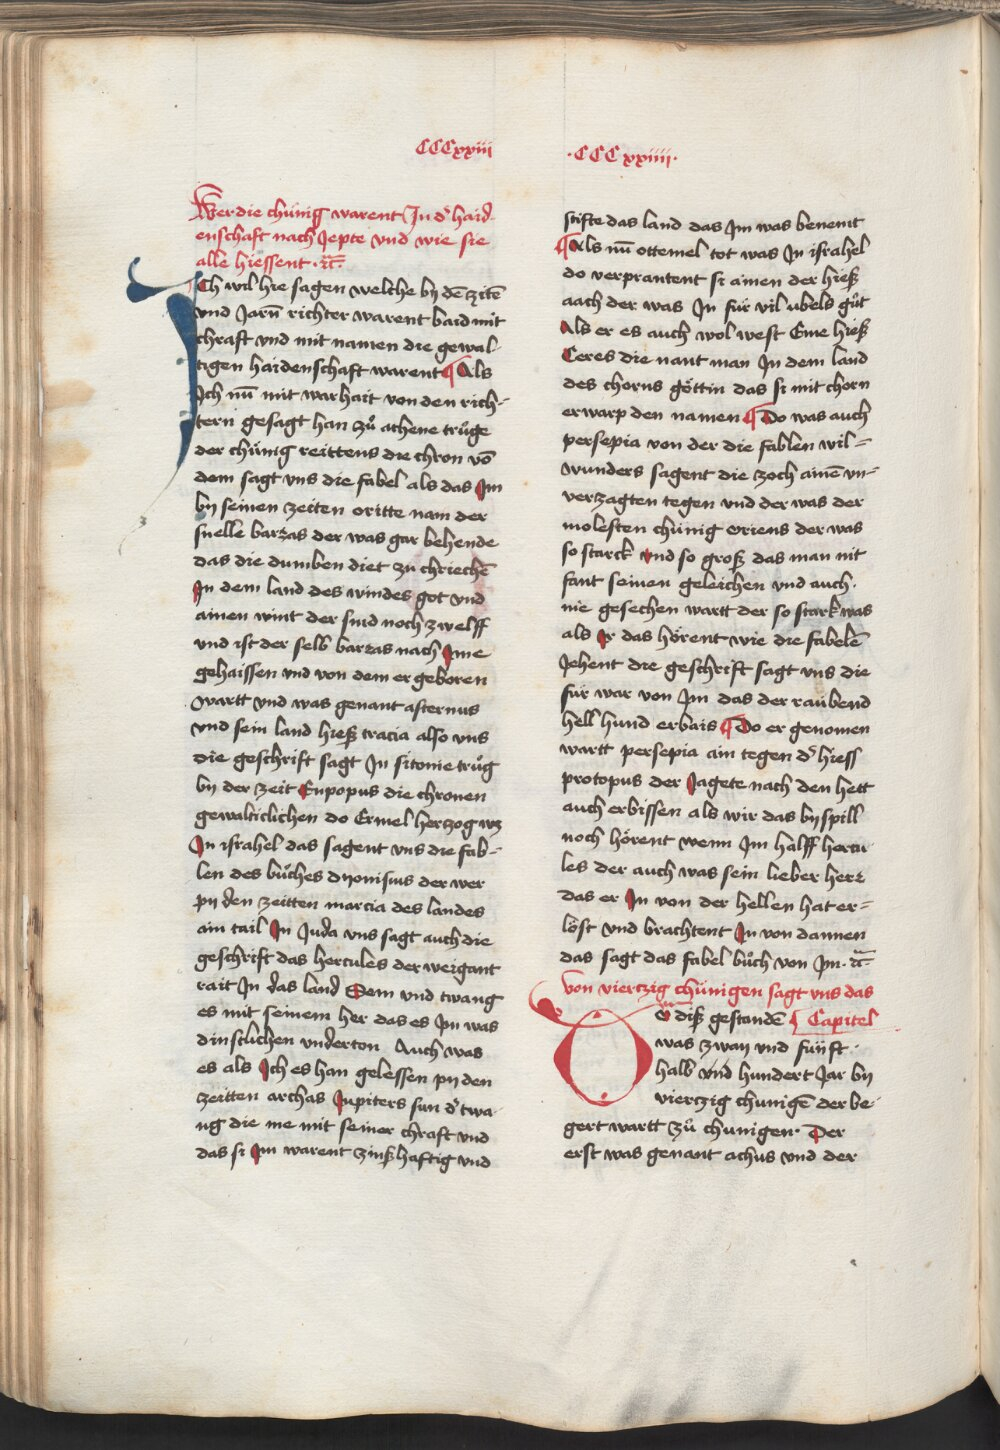 CCCxxiii
Wer die chünig warent In dˀ haid-
enschaft nach Jepte vnd wie sie
alle hiessent ·ꝛc̄·
Ich wil hie sagen welche bÿ dē zitē
vnd Jarn̄ richter warent baid mit
chraft vnd mit namen die gewal-
tigen haidenschaft warent ¶ Als
Ich nū mit warhait von den rich-
tern gesagt han zuͦ athene truͤge
der chünig reittens die chron vō
dem sagt vns die fabel als das Im
bÿ seinen zeiten oritte nam der
snelle barzas der was gar behende
das die dumben diet zu chriechē
In dem land des windes got vnd
ainen wint der sind noch zwelff
vnd ist der selb barzas nach Ime
gehaissen vnd von dem er geboren
wartt vnd was genant asternus
vnd sein land hieß tracia also vns
die geschrift sagt In sitonie truͤg
bÿ der zeit Eupopus die chronen
gewalticlichen do Ermel hertzog wz
In israhel das sagent vns die fab-
len des buͦches dÿonisius der wer
pÿ den zeitten marcia des landes
ain tail In Juda vns sagt auch die
geschrift das hercules der weigant
rait In das land Sem vnd twang
es mit seinem her das es Im was
dinstlichen vnderton Auch was
es als Ich es han gelessen pÿ den
zeitten archas Jupiters sun dˀ twa-
ng die me mit seiner chraft vnd
das si Im warent zinßhaftig vnd
·CCCxxiiii·
stifte das land das Im was benemt
¶ Als nū ottemel tot was In israhel
do verprantent si ainen der hieß
aach der was In für vil übels guͦt
Als er es auch wol west Eine hieß
Ceres die nant man In dem land
des chorns göttin das si mit chorn
erwarp den namen ¶ Do was auch
persepia von der die fablen wil-
wunders sagent die zoch ainē vn-
verzagten tegen vnd der was der
molesten chünig oriens der was
so starck vnd so groß das man nit
fant seinen geleichen vnd auch
nie gesechen wartt der so stark was
als Ir das hörent wie die fabelē
Jehent die geschrift sagt vns die
für war von Im das der raubend
hell hund erbais ¶ Do er genomen
wartt persepia ain tegen dˀ hiess
protopus der Jagete nach den hett
auch erbissen als wir das bÿspill
noch hörent wenn Im halff hercu
les der auch was sein lieber herz
das er In von der hellen hat er-
löst vnd brachtent In von dannen
das sagt das fabel buͦch von Im· ꝛc̄
Von vierczig chünigen sagt vns das
diß gestandē ¶ Capitel
was zwaÿ vnd fünft
halb vnd hundert Jar bÿ
vierczig chunigē der be-
gert wartt zuͦ chunigen· Der
erst was genant achus vnd der